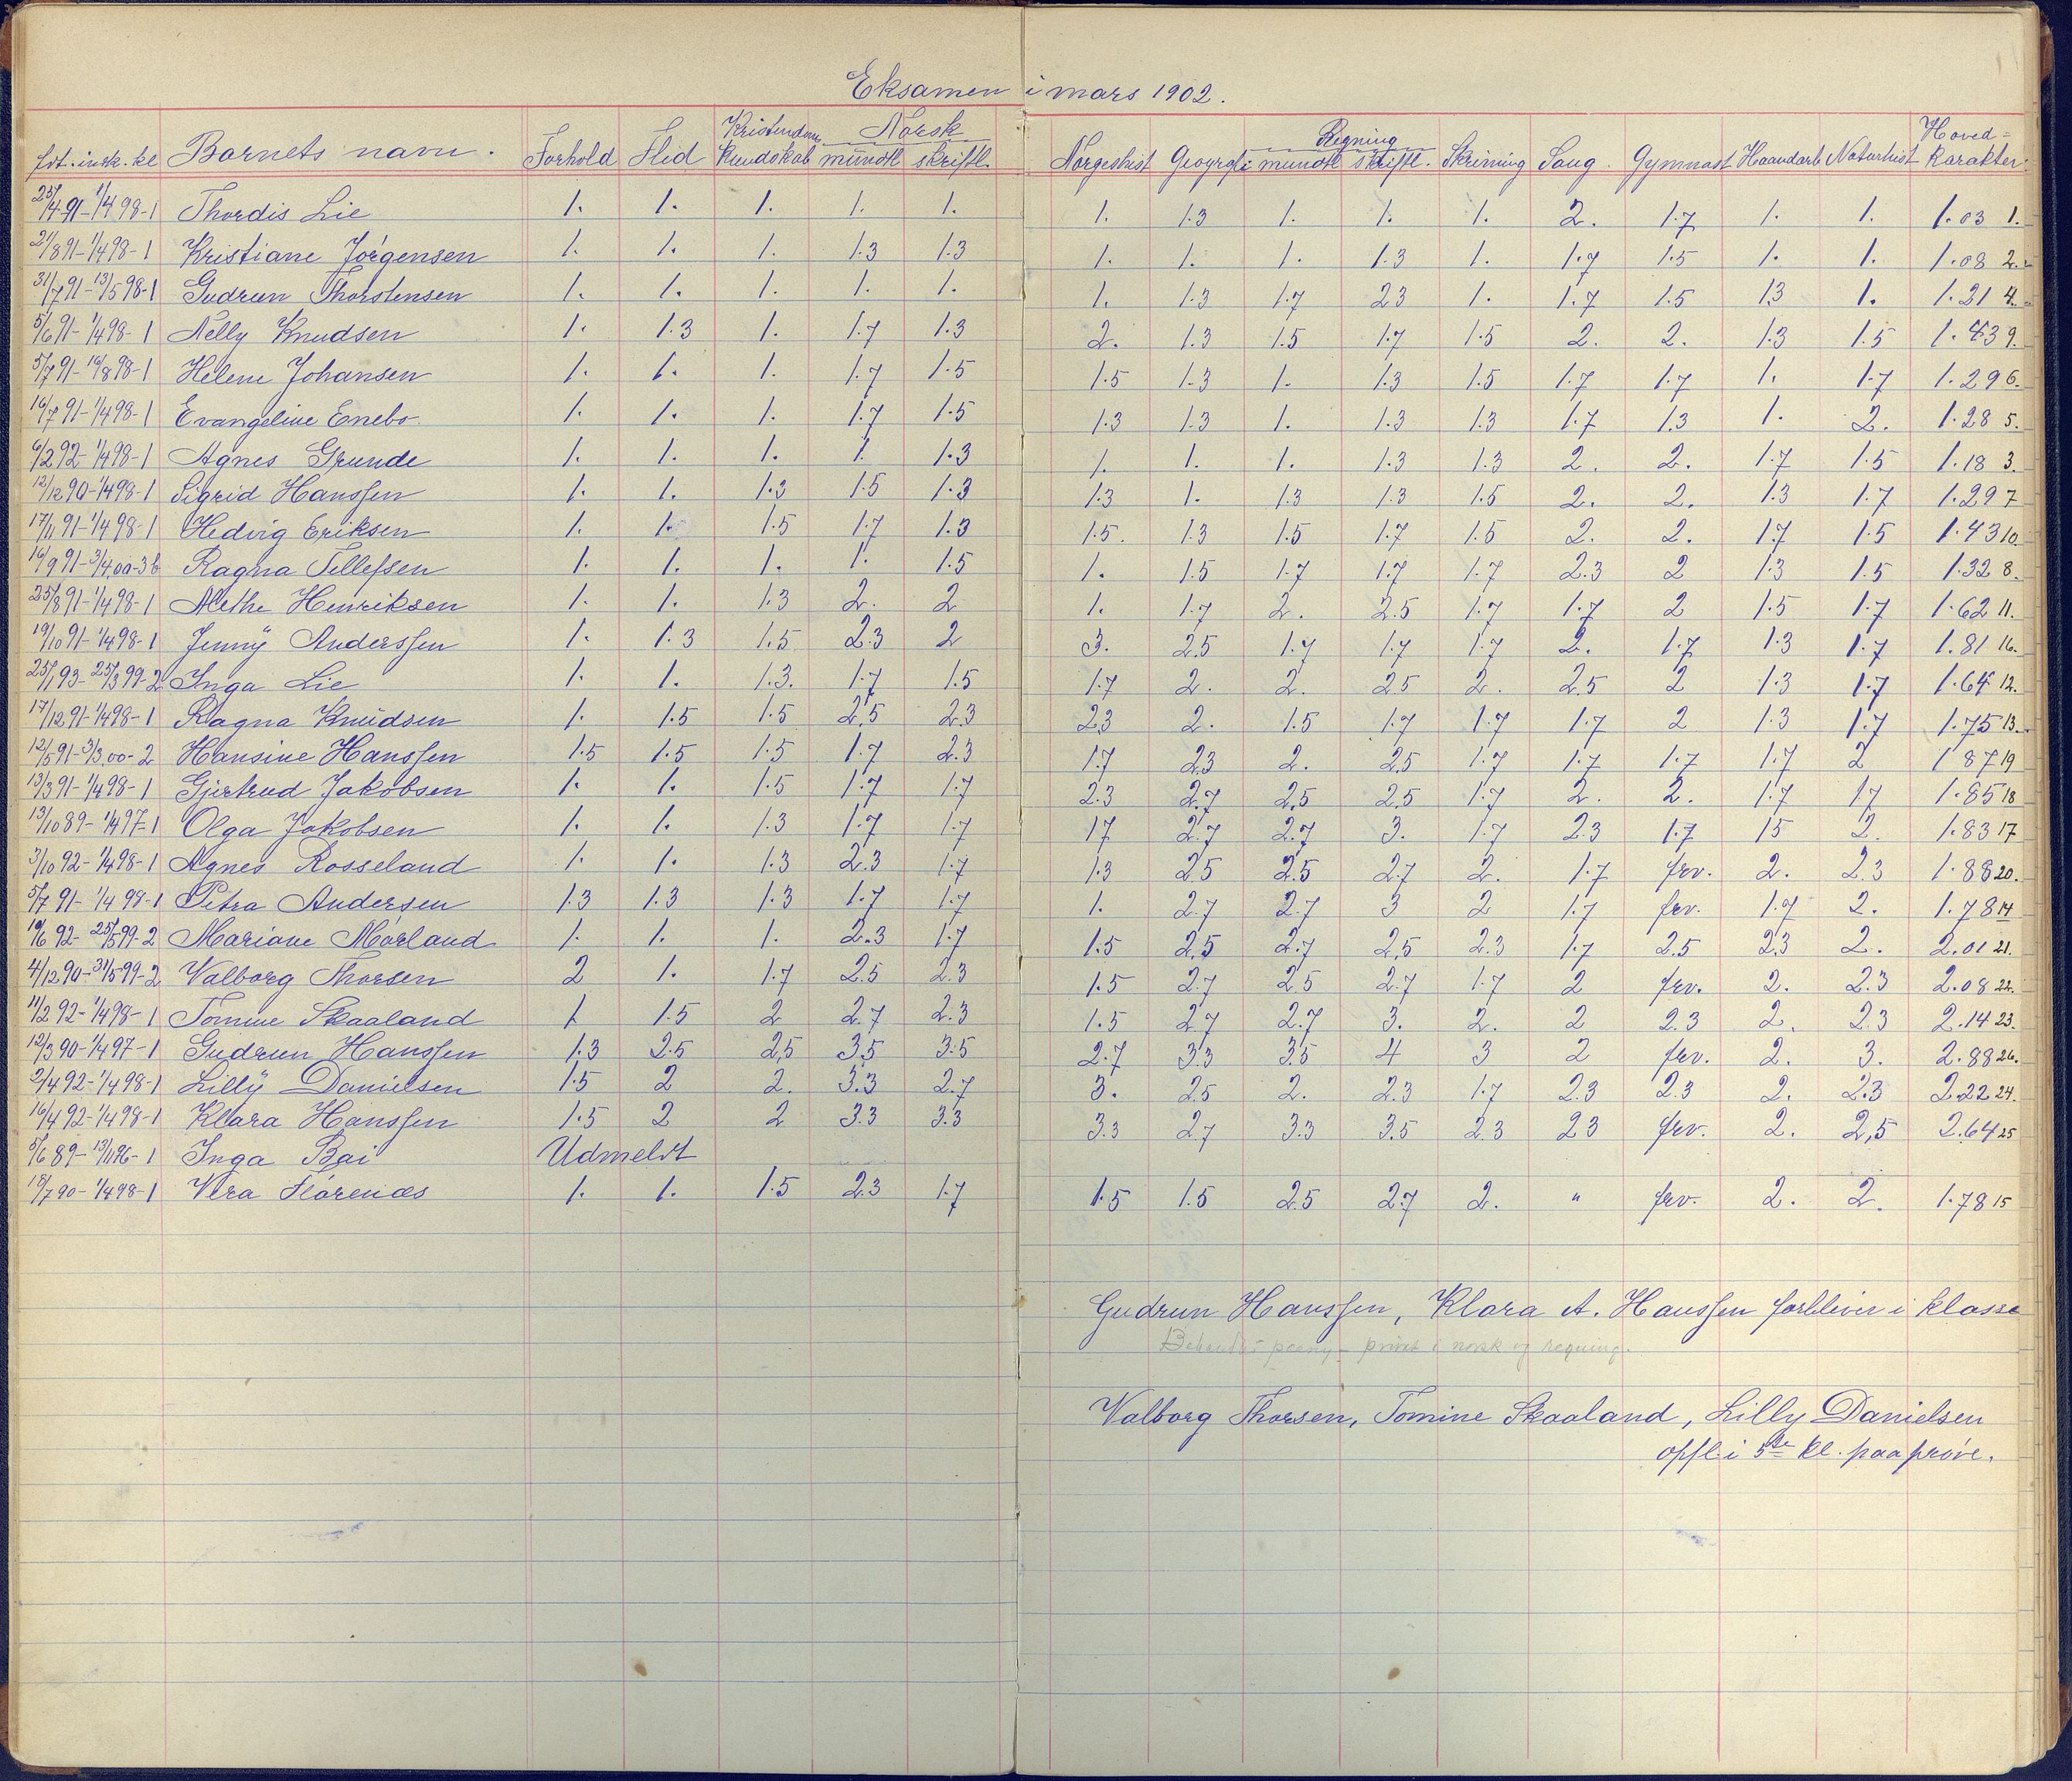 Eksamen i mars 1902.
Kristendoms Norsk Regning Hoved-
fdt. insk. kl Barnets navn. Forhold Flid kundskab mündtl skriftl. Norgeshist Geografi mundtl skriftl. Skrivning Sang. Gymnast Haandarb Naturhist karakter.
25/4 91-1/4 98-1 Thordis Lie 1. 1. 1. 1. 1. 1. 1.3 1. 1. 1. 2. 1.7 1. 1. 1.03 1.
21/8 91-1/4 98-1 Kristiane Jórgensen 1. 1. 1. 1.3 1.3 1. 1. 1. 1.3 1. 1.7 1.5 1. 1. 1.08 2.
31/7 91-13/5 98-1 Gudrun Thorstensen 1. 1. 1. 1. 1. 1. 1.3 1.7 2.3 1. 1.7 1.5 1.3 1. 1.21 4.
5/6 91-1/4 98-1 Nelly Knudsen 1. 1.3 1. 1.7 1.3 2. 1.3 1.5 1.7 1.5 2. 2. 1.3 1.5 1.43 9.
5/7 91-16/8 98-1 Helene Johansen 1. 1. 1. 1.7 1.5 1.5 1.3 1. 1.3 1.5 1.7 1.7 1. 1.7 1.29 6.
16/7 91-1/4 98-1 Evangeline Enebo 1. 1. 1. 1.7 1.5 1.3 1.3 1. 1.3 1.3 1.7 1.3 1. 2. 1.28 5.
6/2 92-1/4 98-1 Agnes Grunde 1. 1. 1. 1. 1.3 1. 1. 1. 1.3 1.3 2. 2. 1.7 1.5 1.18 3.
12/12 90-1/4 98-1 Sigrid Hanssen 1. 1. 1.3 1.5 1.3 1.3 1. 1.3 1.3 1.5 2. 2. 1.3 1.7 1.29 7
17/11 91-1/4 98-1 Hedvig Eriksen 1. 1. 1.5 1.7 1.3 1.5. 1.3 1.5 1.7 1.5 2. 2. 1.7 1.5 1.43 10.
16/9 91-3/4 00-3b Ragna Tellefsen 1. 1. 1. 1. 1.5 1. 1.5 1.7 1.7 1.7 2.3 2 1.3 1.5 1.32 8.
25/8 91-1/4 98-1 Alethe Henriksen 1. 1. 1.3 2. 2 1. 1.7 2. 2.5 1.7 1.7 2 1.5 1.7 1.62 11.
19/10 91-1/4 98-1 Jenny Anderssen 1. 1.3 1.5 2.3 2 3. 2.5 1.7 1.7 1.7 2. 1.7 1.3 1.7 1.81 16.
25/1 93-25/3 99-2 Inga Lie 1. 1. 1.3. 1.7 1.5 1.7 2. 2. 2.5 2. 2.5 2 1.3 1.7 1.64 12.
17/12 91-1/4 98-1 Ragna Knüdsen 1. 1.5 1.5 2.5 2.3 2.3 2. 1.5 1.7 1.7 1.7 2 1.3 1.7 1.75 13.
12/5 91-3/3.00-2 Hansine Hanssen 1.5 1.5 1.5 1.7 2.3 1.7 2.3 2. 2.5 1.7 1.7 1.7 1.7 2 1 87 19
13/3 91-1/4 98-1 Gjertrud Jakobsen 1. 1. 1.5 1.7 1.7 2.3 2.7 2.5 2.5 1.7 2. 2. 1.7 17 1.85 18
13/10 89-1/4 97-1 Olga Jakobsen 1. 1. 1.3 1.7 1.7 17 2.7 2.7 3. 1.7 2.3 1.7 15 2. 1.83 17
3/10 92-1/4 98-1 Agnes Rosseland 1. 1. 1.3 2.3 1.7 1.3 2.5 2.5 2.7 2. 1.7 frv. 2. 2.3 1.88 20.
5/7 91-1/4 98-1 Petra Andersen 1.3 1.3 1.3 1.7 1.7 1. 2.7 2.7 3 2 1.7 frv. 1.7 2. 1.78 14
19/6 92-25/5 99-2 Mariane Mórland 1. 1. 1. 2.3 1.7 1.5 2.5 2.7 2.5 2.3 1.7 2.5 2.3 2. 2.01 21.
4/12 90-31/5 99-2 Valborg Thorsen 2 1. 1.7 2.5 2.3 1.5 2.7 2.5 2.7 1.7 2 frv. 2. 2.3 2.08 22.
11/2 92-1/4 98-1 Tomine Skaaland 1 1.5 2 2.7 2.3 1.5 2.7 2.7 3. 2. 2 2.3 2. 2.3 2.14 23.
12/3 90-1/4 97-1 Gudrun Hanssen 1.3 2.5 2.5 3.5 3.5 2.7 3.3 3.5 4 3 2 frv. 2. 3. 2.88 26.
2/4 92-1/4 98-1 Lilly Danielsen 1.5 2 2. 3.3 2.7 3. 2.5 2. 2.3 1.7 2.3 2.3 2. 2.3 2.22 24.
16/4 92-1/4 98-1 Klara Hanssen 1.5 2 2 3.3 3.3 3.3 2.7 3.3 3.5 2.3 2.3 frv. 2. 2,5 2.64 25
5/6 89-13/11 96-1 Inga Bai Udmeldt
18/7 90-1/4 98-1 Vera Flórenæs 1. 1. 1.5 2.3 1.7 1.5 1.5 2.5 2.7 2. " frv. 2. 2. 1.78 15
Gudrun Hanssen, Klara A. Hanssen forbliver i klasse
i norsk og regning.
Valborg Thorsen, Tomine Skaaland, Lilly Danielsen
opfl. i 5te kl. paa próve.